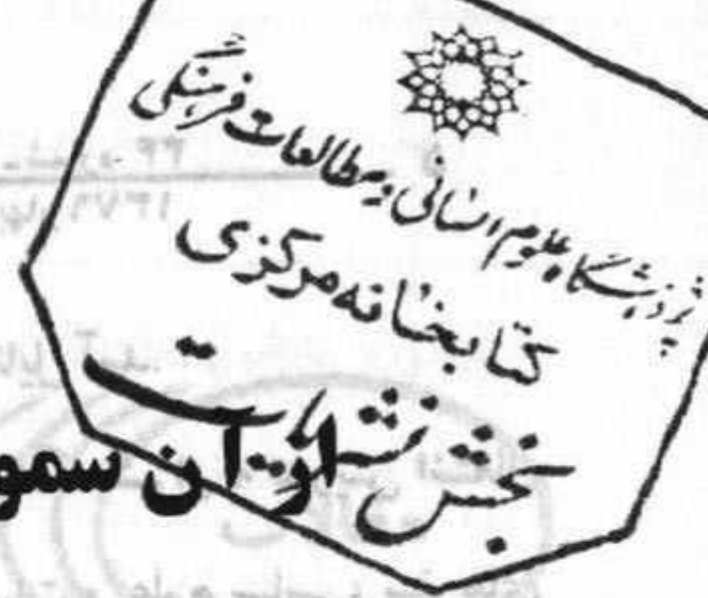 پژوهشگاه علوم انسانی و مطالعات فرهنگی
کتابخانه مرکزی
بخش نشریات
از آن سمو